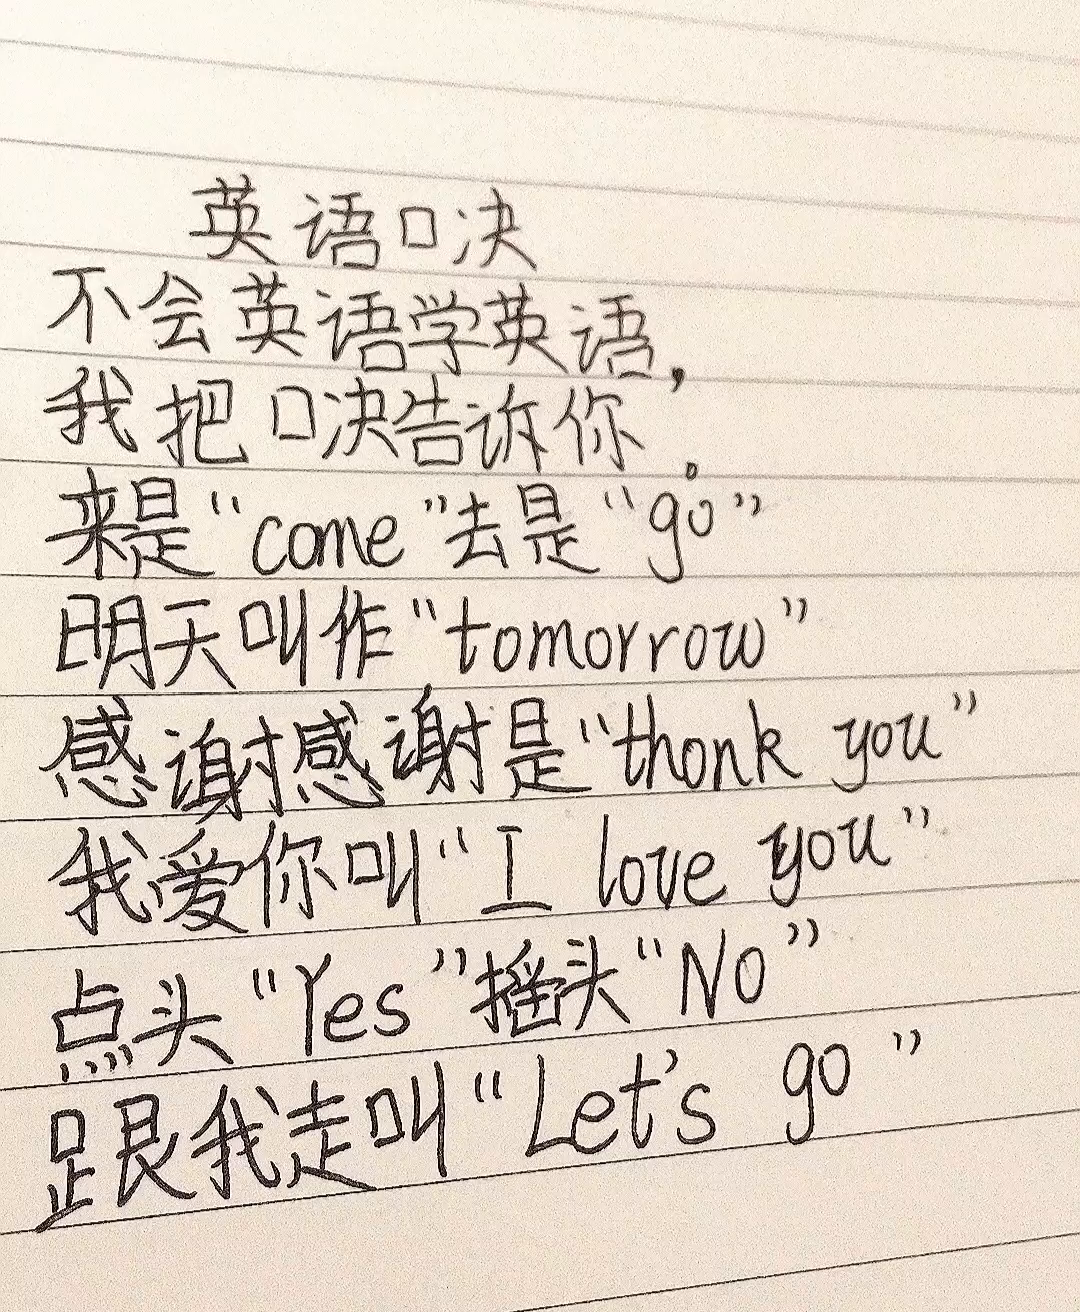 英语口决
不会英语学英语,
我把口决告诉你。
来是“come”去是“go”
明天叫作“tomorrow”
感谢感谢是“thonk you”
我爱你叫“I love you”
点头“Yes”摇头“No”
跟我走叫“Let's go”